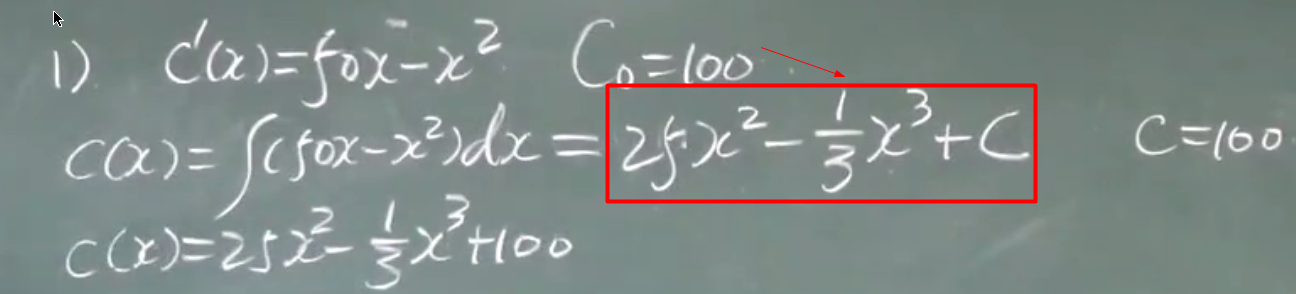 1) C'(x)=50x-x² C₀=100
C(x)=∫(50x-x²)dx=25x²-1/3x³+C C=100
C(x)=25x²-1/3x³+100